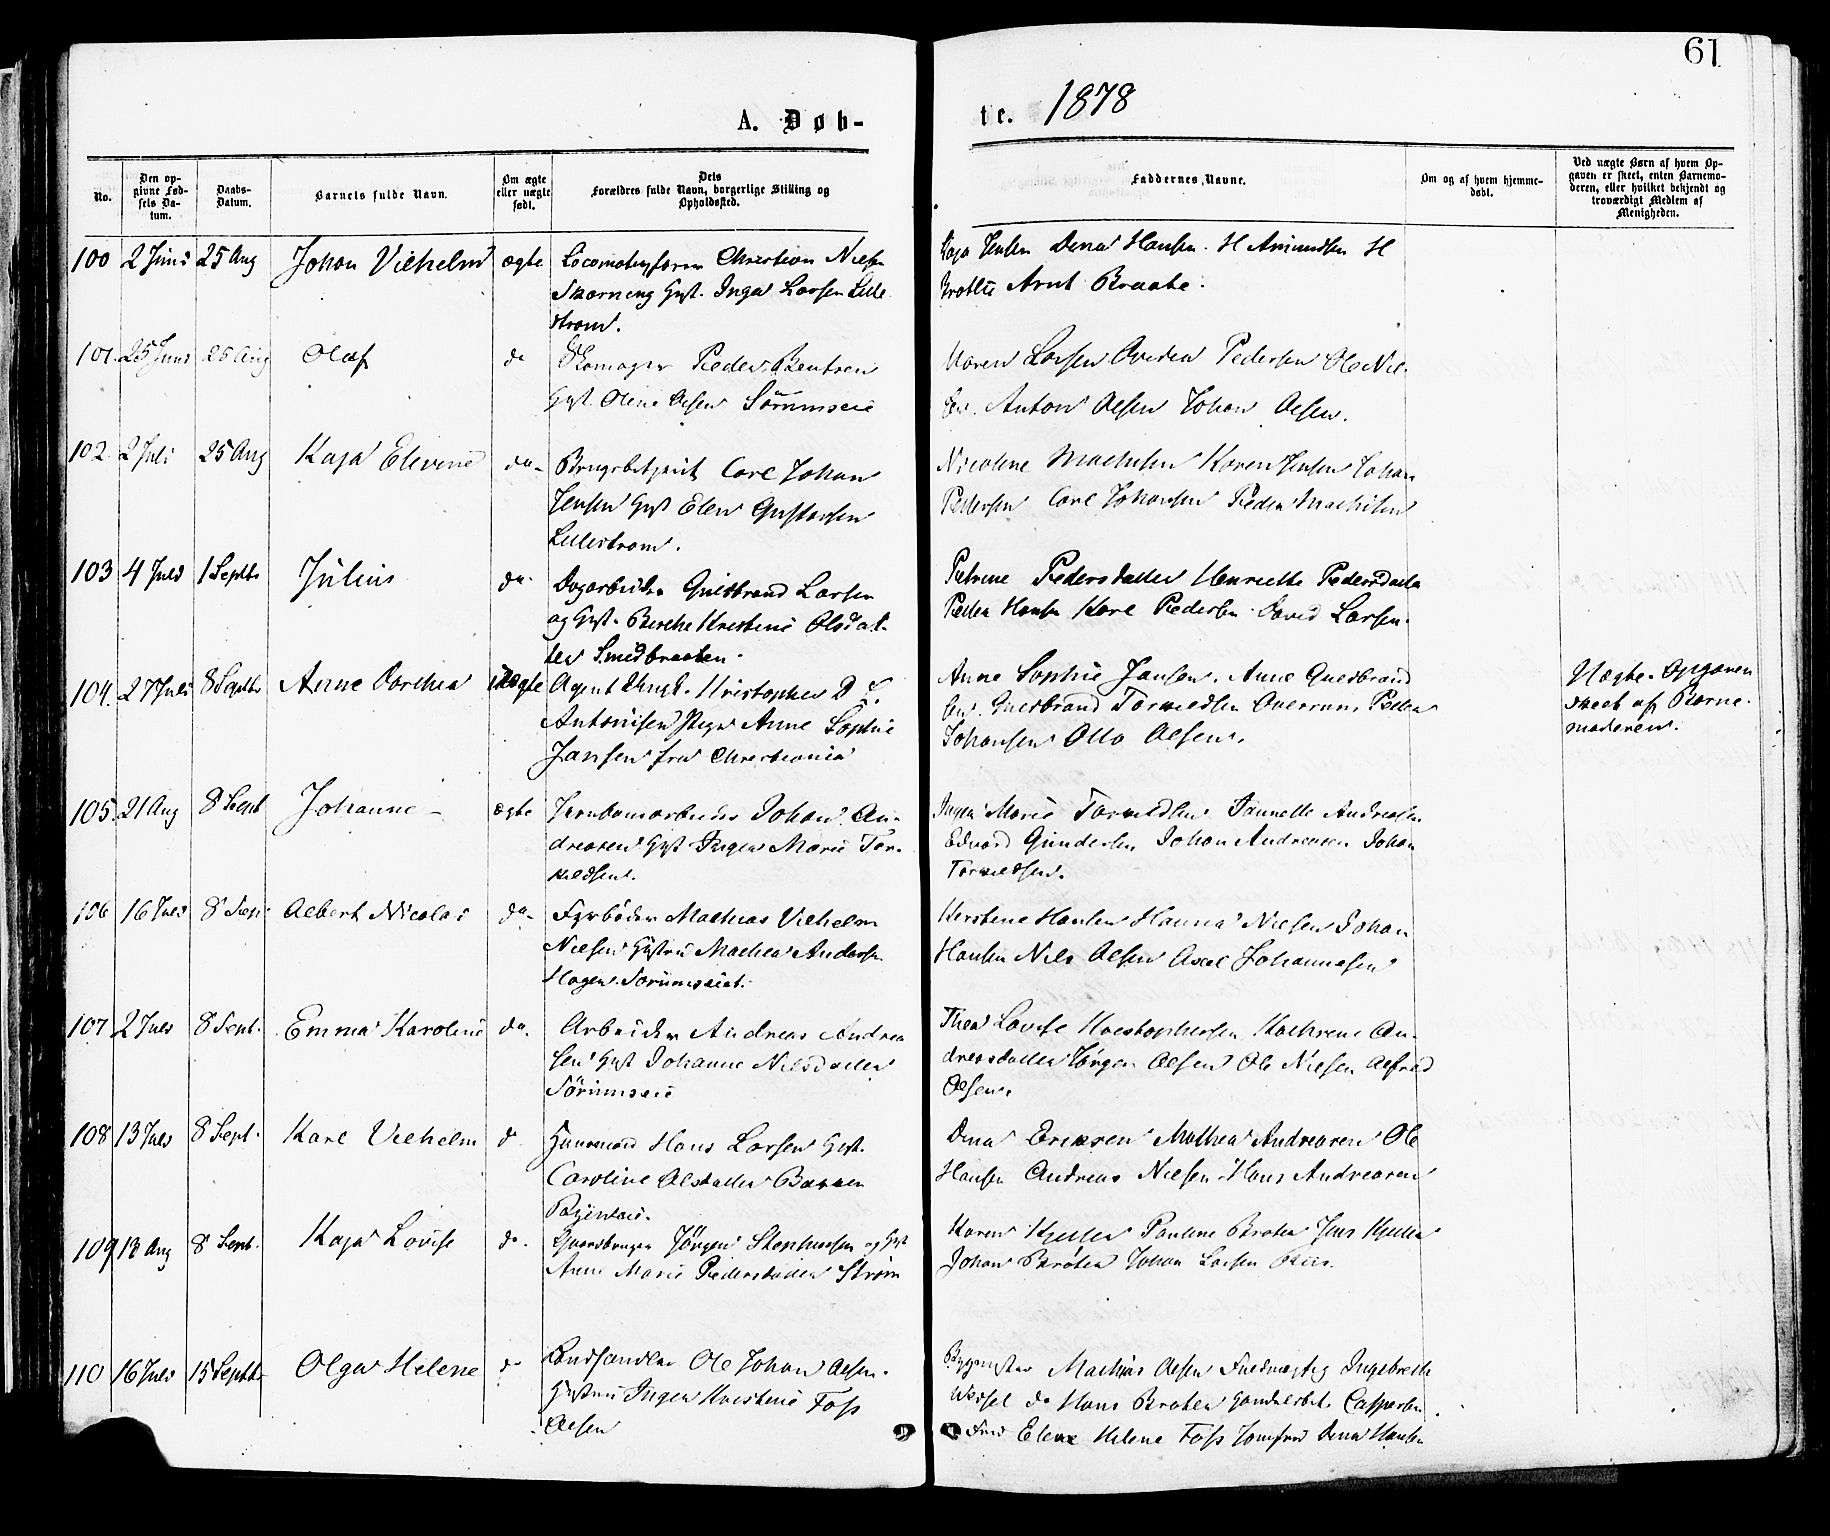 61
A. Døb-
te. 1878
No.
Den op-
givne Fød-
sels Da-
tum.
Daabs-
Datum.
Barnets fulde Navn.
Om ægte
eller uægte
født.
Dets
Forældres fulde Navn, borgerlige Stilling og
Opholdssted.
Faddernes Navne.
Om og af hvem hjemme-
døbt.
Ved uægte Børn af hvem Op-
gaven er skeet, enten Barnemo-
deren, eller hvilket bekjendt og
troværdigt Medlem af
Menigheden.
100 2 Juni 25 Aug Johan Vilhelm ægte Christian Niels
Inger Larsen Lille
strøm.
Dina Hansen. H Amundsen H
Arnt Braate.
101. 25 Juni 25 Aug Olaf do Skomager Peder Bentsen
Gust. Oline Olsen Sørumseie
Maren Larsen Pedersen Ole Niel
sen. Anton Olsen Johan Olsen.
102 2 Juli 25 Aug Kaja Elevine do Brugsbetjent Carl Johan
Jensen Gust Elen Gustavsen
Lillestrøm.
Nicoline Mathisen Karen Jensen Johan
Pedersen Carl Johansen Peder Mathisen
103 4 Juli 1 Septb Julius do Dagarbeider Gulbrand Larsen
og Gust. Berthe Kristine Olsdat-
ter Smedbraaten.
Petrine Pedersdatter Henriette Pedersdatter
Peder Hansen Karl Pedersen David Larsen.
104. 27 Juli 8 Septb Anne Dorthea uægte Agent Kristopher D
Antonisen Pige Anne Sophie
Jansen fra Christiania
Anne Sophie Jansen, Anne Gulbrand
sen. Gulbrand Torkildsen Peder
Johansen Otto Olsen.
Uægte. Opgaven
skeet af Barne-
moderen.
105. 21 Aug 8 Sept Johanne ægte Jernbanearbeider Johan An-
dreasen Gust Inger Marie Tor-
kildsen.
Inger Marie Torkildsen Jannette Andreasen
Edvard Gundersen Johan Andreasen Johan
Torkildsen.
106 16 Juli 8 Sep Albert Nicolai do Fyrbøder Mathias Vilhelm
Nielsen Hustru Mathea Andersen
Hagen Sørumseiet.
Kirstine Hansen Hanna Nielsen Johan
Hansen Nils Olsen Axel Johannesen
107 2 Juli 8 Sept. Emma Karoline do. Arbeider Andreas Andrea
sen Gust Johanne Nilsdatter
Sørumseie
Thea Lovise Kristophersen Kathrine An-
dreasdatter Jørgen Olsen Ole Nielsen Alfred
Olsen.
108 13 Juli 8 Sept. Karl Vilhelm do Huusmand Hans Larsen Gust.
Caroline Olsdatter Bakken
Dina Eriksen Mathea Andreasen Ole
Hansen Andreas Nielsen Hans Andreasen
109 12 Aug 8 Sept. Kaja Lovise do. Gaardbruger Jørgen Stephensen og Gust
Anne Marie Pedersdatter Strøm
Karen Kjeller Pauline Braten Jens Kjeller
Johan Brøten Johan Larsen Riis.
110 16 Juli 15 Septb Olga Helene do Landhandler Ole Johan Olsen.
Hustru Inger Kristine Foss
Olsen
Bygmester Mathias Olsen Fuldmægtig Ingebreth
Wessel do Hans Braten Handelsbet. Caspersen
Fru Elene Helene Foss Jomfru Dina Hansen